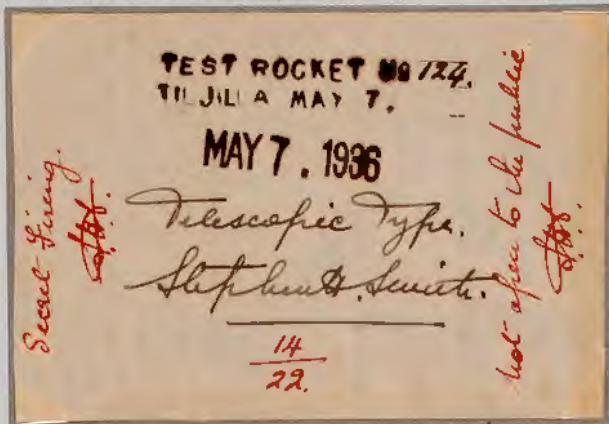 TEST ROCKET No 124.
TILJILLA MAY 7.
MAY 7. 1936
Telescopic Type.
Stephen H. Smith.
14
22.
Secret Firing.
S.H.S.
Not open to the public
S.H.S.